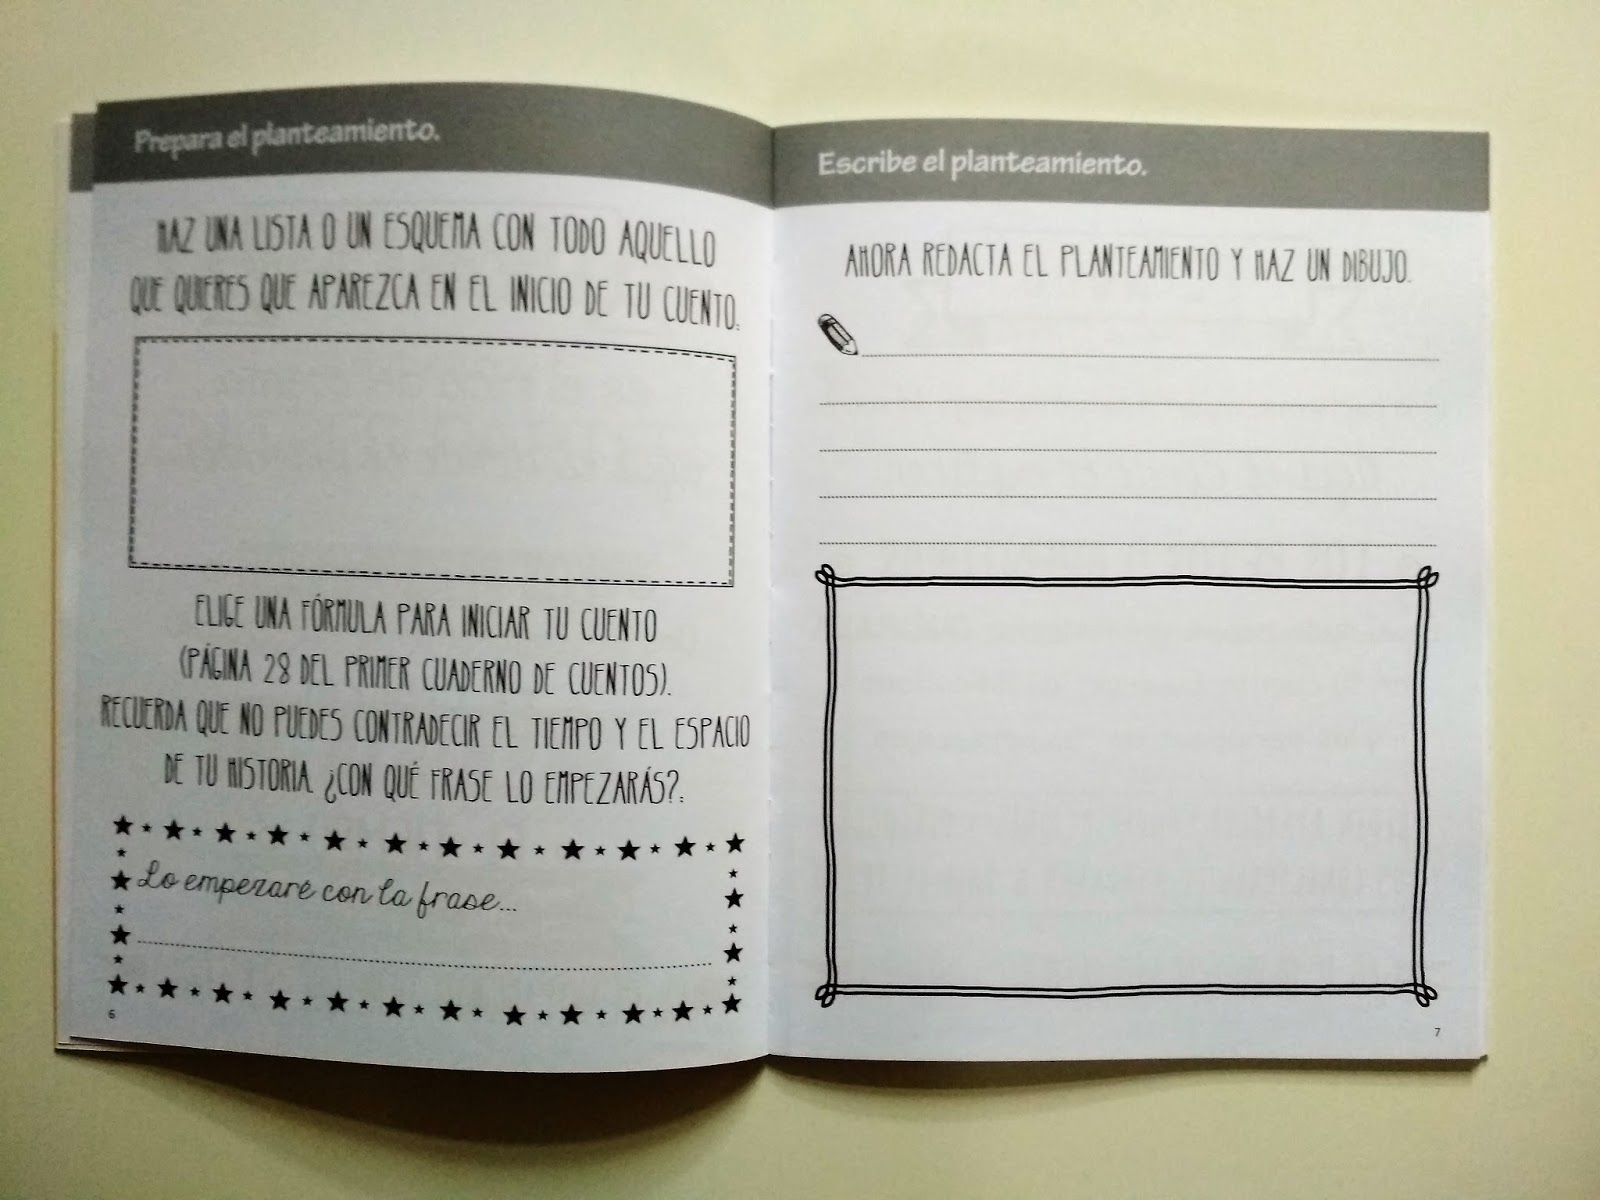 Prepara el planteamiento.
HAZ UNA LISTA O UN ESQUEMA CON TODO AQUELLO
QUE QUIERES QUE APAREZCA EN EL INICIO DE TU CUENTO.
ELIGE UNA FÓRMULA PARA INICIAR TU CUENTO
(PÁGINA 28 DEL PRIMER CUADERNO DE CUENTOS).
RECUERDA QUE NO PUEDES CONTRADECIR EL TIEMPO Y EL ESPACIO
DE TU HISTORIA. ¿CON QUÉ FRASE LO EMPEZARÁS?.
Lo empezaré con la frase...
6
Escribe el planteamiento.
AHORA REDACTA EL PLANTEAMIENTO Y HAZ UN DIBUJO.
7